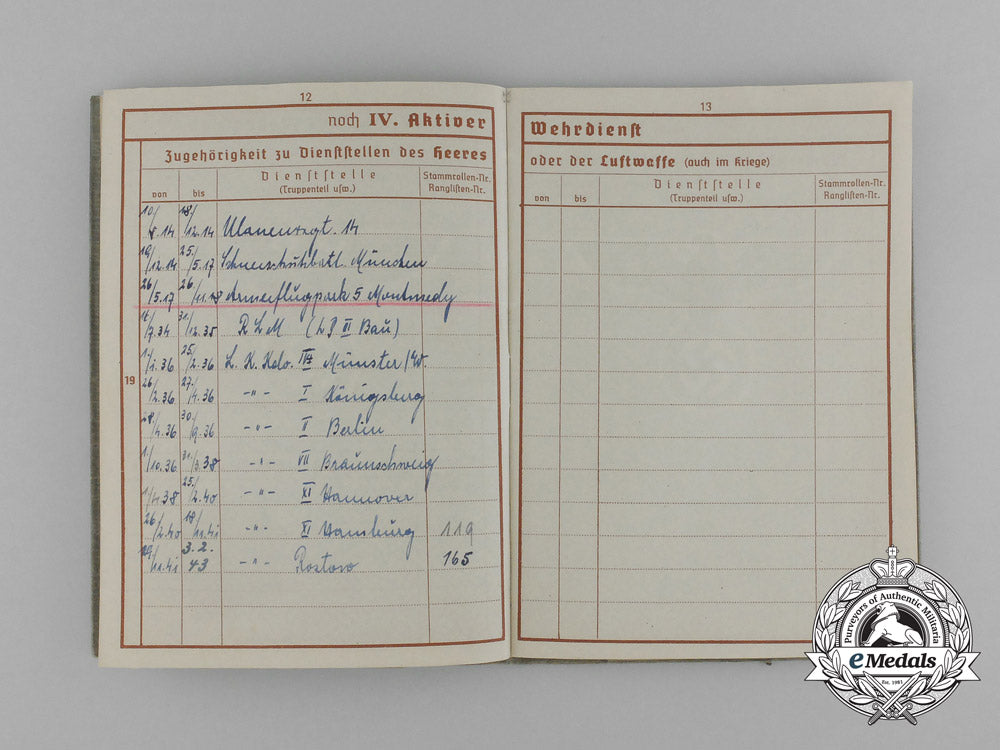 12
noch IV. Aktiver
Zugehörigkeit zu Dienststellen des Heeres
von
bis
Dienststelle
(Truppenteil usw.)
Stammrollen-Nr.
Ranglisten-Nr.
19
10/8.14 18/12.14 Ulanenregt. 14
19/12.14 25/5.17 München
26/5.17 26/11.18 Armeeflugpark 5 Montmedy
/7.34 31/12.35 R L M (LD II Bau)
1/1.36 25/2.36 L. K. Kdo. Münster/W.
26/2.36 27/4.36 -"- I Königsburg
28/4.36 30/9.36 -"- II Berlin
1/10.36 31/3.38 -"- VII Braunschweig
1/4.38 25/2.40 -"- XI Hannover
26/2.40 18/11.41 -"- XI Hamburg 119
19/11.41 3.2.43 -"- Rostow 165
13
Wehrdienst
oder der Luftwaffe (auch im Kriege)
von
bis
Dienststelle
(Truppenteil usw.)
Stammrollen-Nr.
Ranglisten-Nr.
Purveyors of Authentic Militaria
eMedals
Est. 1981